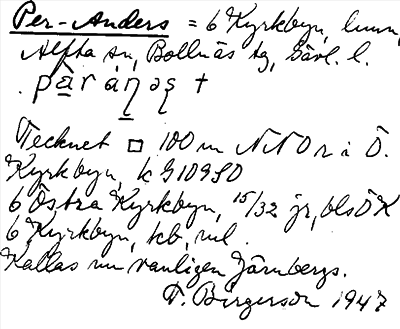 Per-Anders = 6 Kyrkbyn, humn,
Alfta sn, Bollnäs tg, Gävl. l.
pär án əs †
Tecknet □ 100 m NNO n i Ö.
Kyrkbyn, k G 109 SO
6 Östra Kyrkbyn, 15/32 jr, bls ÖK
6 Kyrkbyn, kb, ml.
Kallas nu vanligen Järnbergs.
T. Birgerson 1947